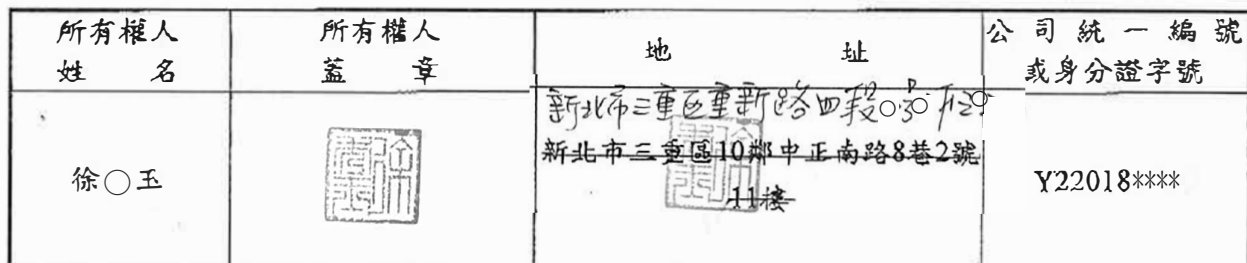 所有權人
姓 名
所有權人
蓋 章
地 址
公司統一編號
或身分證字號
徐○玉
新北市三重區重新路四段
新北市三重區10鄰中正南路8巷2號
11樓
Y22018****